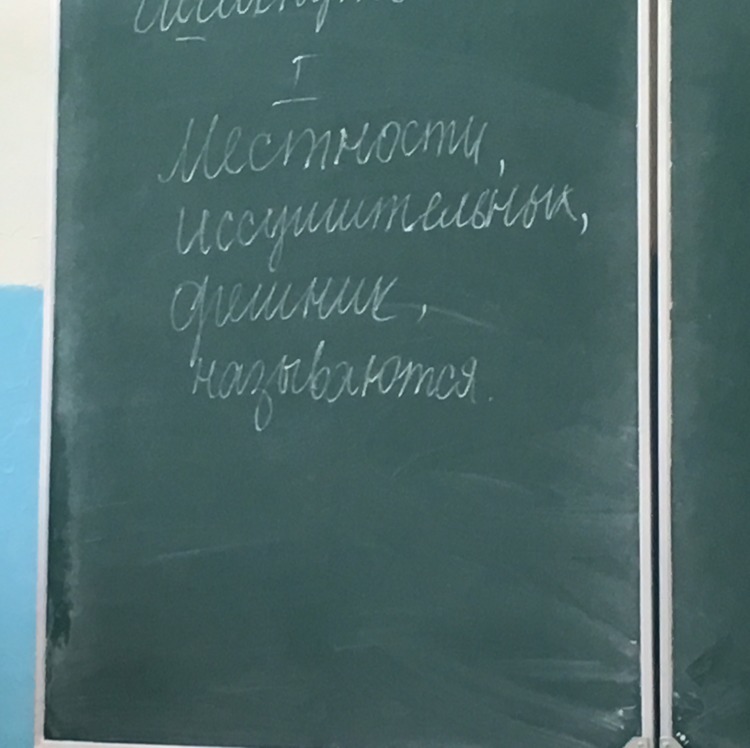 I
Местности,
иссушительных,
орешник,
называются.